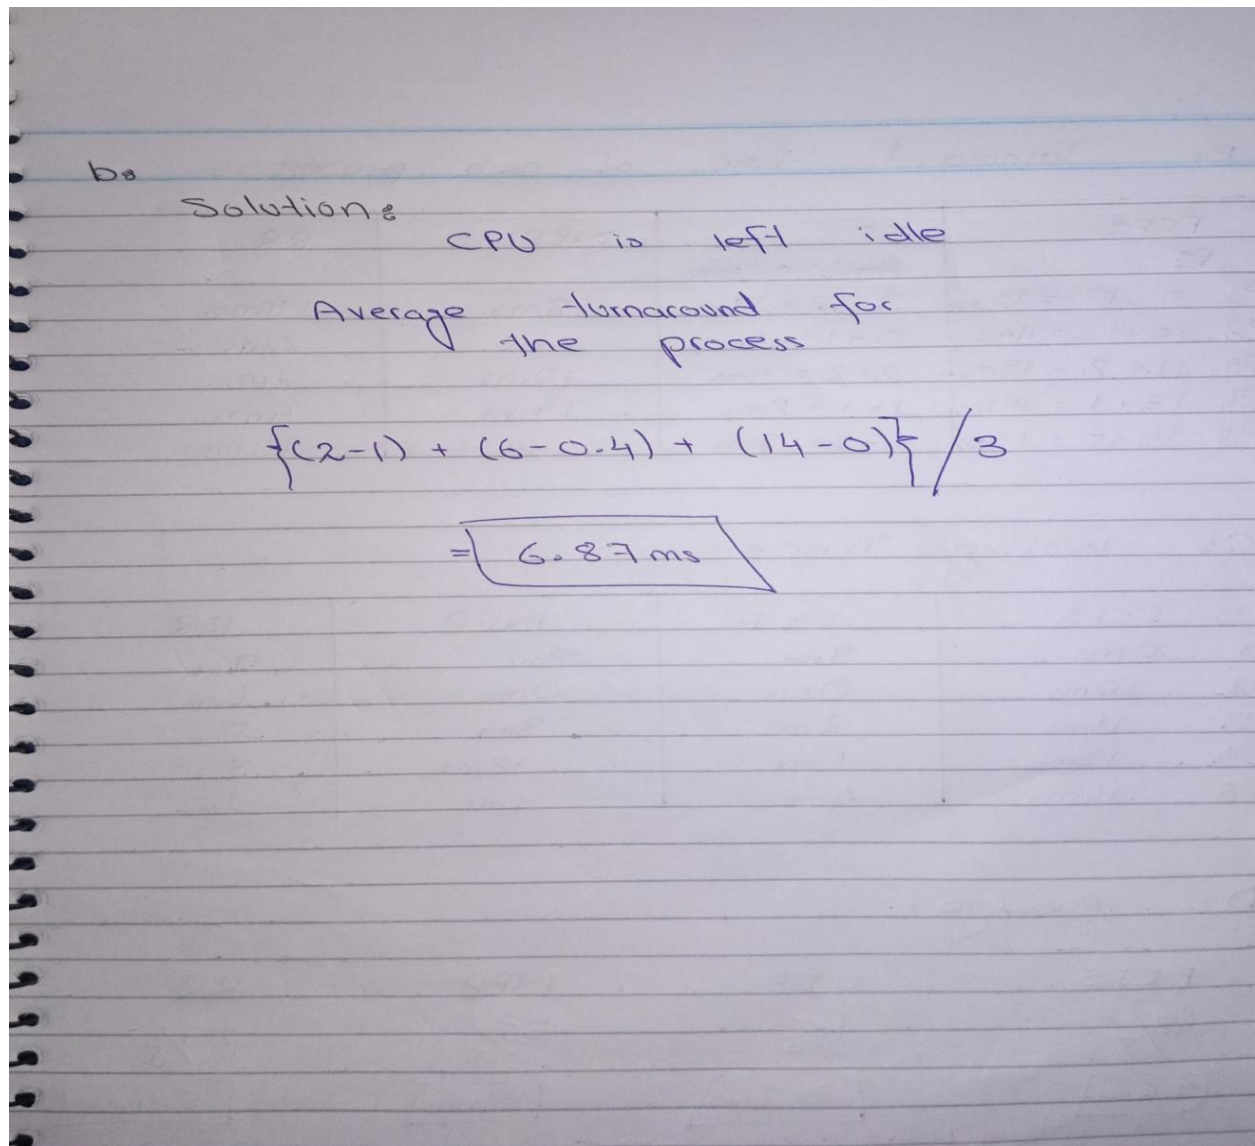 b:
Solution:
CPU is left idle
Average turnaround for
the process
{(2-1) + (6-0.4) + (14-0)} / 3
= 6.87 ms